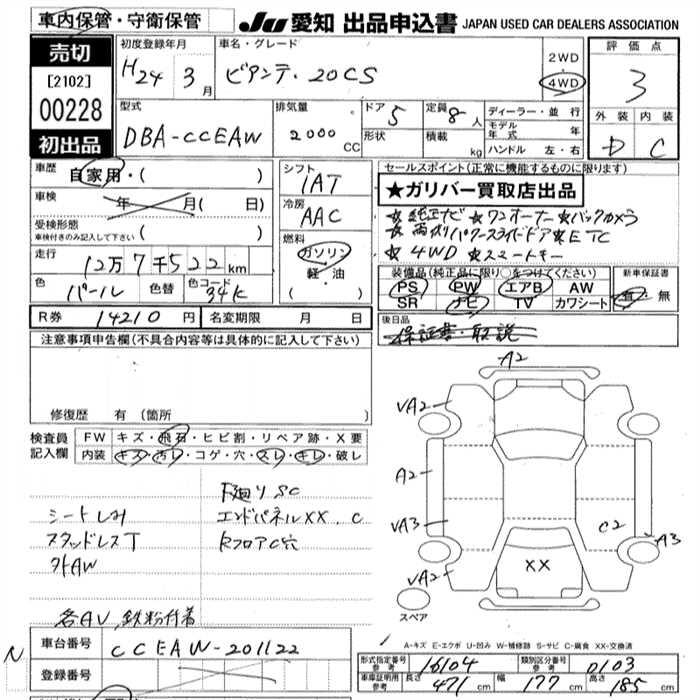 車内保管・守衛保管
JU 愛知 出品申込書 JAPAN USED CAR DEALERS ASSOCIATION
売切
[2102]
00228
初出品
初度登録年月
H24 3月
車名・グレード
ビアンテ・20CS
2WD
4WD
評価点
3
外装 内装
D C
型式
DBA-CCEAW
排気量
2000 CC
ドア 5
形状
定員 8人
積載 kg
ディーラー・並行
モデル年式 年
ハンドル 左・右
車歴
自家用・( )
車検
年 月( 日)
受検形態
車検付きのみ記入して下さい ( )
走行
12万7千522km
色
パール
色替
色コード
34K
シフト
IAT
冷房
AAC
燃料
ガソリン
軽・油
( )
セールスポイント(正常に機能するものに限ります)
★ガリバー買取店出品
★純正ナビ★ワンオーナー★バックカメラ
★両側パワースライドドア★ETC
★4WD★スマートキー
装備品(純正品に限り○をつけてください)
PS PW エアB AW
SR ナビ TV カワシート
新車保証書
有・無
R券 14210円
名変期限 月 日
後日品
保証書・取説
注意事項申告欄(不具合内容等は具体的に記入して下さい)
修復歴 有(箇所 )
検査員
記入欄
FW キズ・飛石・ヒビ割・リペア跡・X要
内装 キズ・汚レ・コゲ・穴・スレ・キレ・破レ
下廻りSC
シートしみ
エンドパネルXX、C
スタッドレスT
RフロアC穴
外AW
各AV、鉄粉付着
A2
VA2
A2
VA3
VA2
C2
A3
XX
スペア
N
車台番号 CCEAW-201122
登録番号
A-キズ E-エクボ U-凹み W-補修跡 S-サビ C-腐食 XX-交換済
形式指定番号 参考 16104
類別区分番号 参考 0103
車庫証明用 参考 長さ 471cm 幅 177cm 高さ 185cm